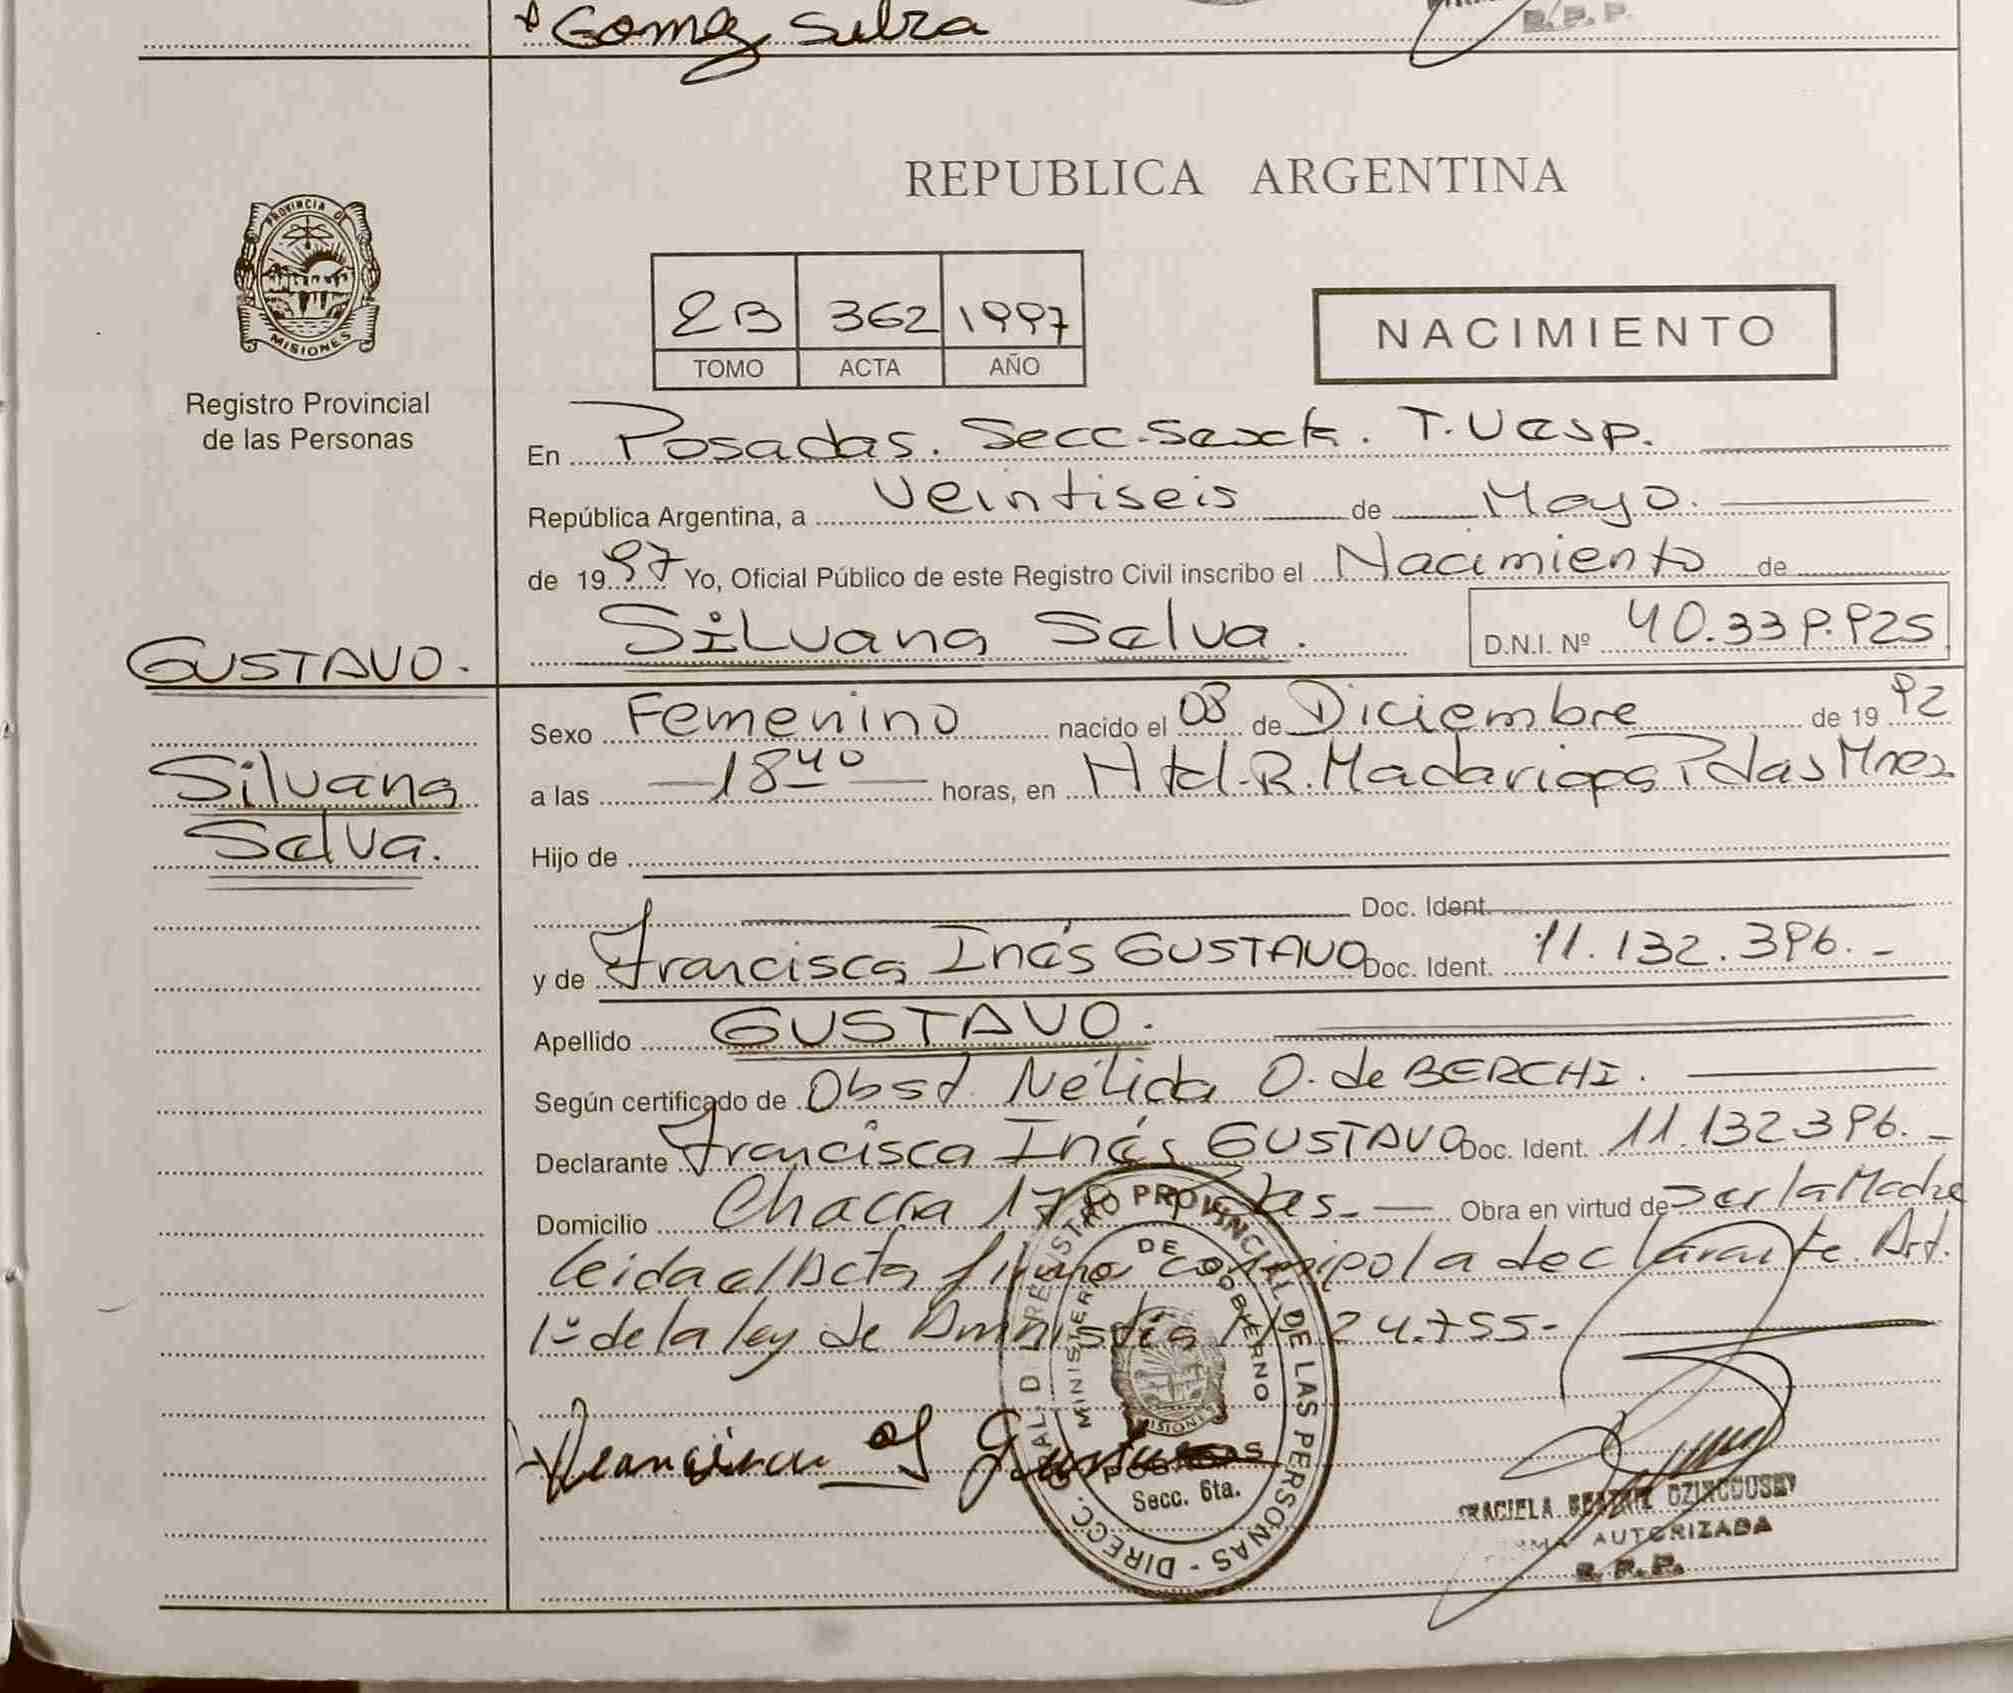 Gomez Silva
R.P.P.
REPUBLICA ARGENTINA
PROVINCIA DE
MISIONES
Registro Provincial
de las Personas
2B 362 1997
TOMO ACTA AÑO
NACIMIENTO
En Posadas. Secc. Sexta. T. Vesp.
República Argentina, a Veintiseis de Mayo.
de 1997 Yo, Oficial Público de este Registro Civil inscribo el Nacimiento de
Silvana Selva. D.N.I. Nº 40.339.925
GUSTAVO.
Silvana
Selva.
Sexo Femenino nacido el 08 de Diciembre de 1992
a las 18 40 horas, en Htal. R. Madariaga Pdas Mnes
Hijo de
Doc. Ident.
y de Francisca Inés GUSTAVO Doc. Ident. 11.132.396.-
Apellido GUSTAVO.
Según certificado de Obst. Nélida O. de BERCHI.
Declarante Francisca Inés GUSTAVO Doc. Ident. 11.132.396.-
Domicilio Chacra 178 Pdas.- Obra en virtud de ser la Madre
leida el Acta firma conmigo la declarante. Art.
1º de la ley de Amnistía Nº 24.755-
DIRECC. GRAL. DEL REGISTRO PROVINCIAL DE LAS PERSONAS
MINISTERIO DE GOBIERNO
MISIONES
POSADAS
Secc. 6ta.
Francisca I Gustavo
GRACIELA BEATRIZ
FIRMA AUTORIZADA
R.P.P.